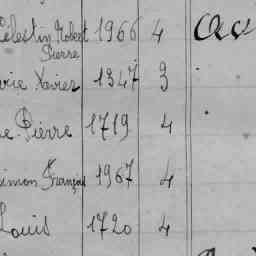 Célestin Robert 1966 4
Pierre
Xavier 1347 3
Pierre 1719 4
Simon François 1967 4
Louis 1720 4